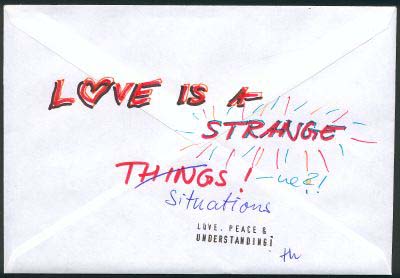 LOVE IS A
STRANGE
THINGS! -ne?!
Situations
LOVE, PEACE &
UNDERSTANDING!